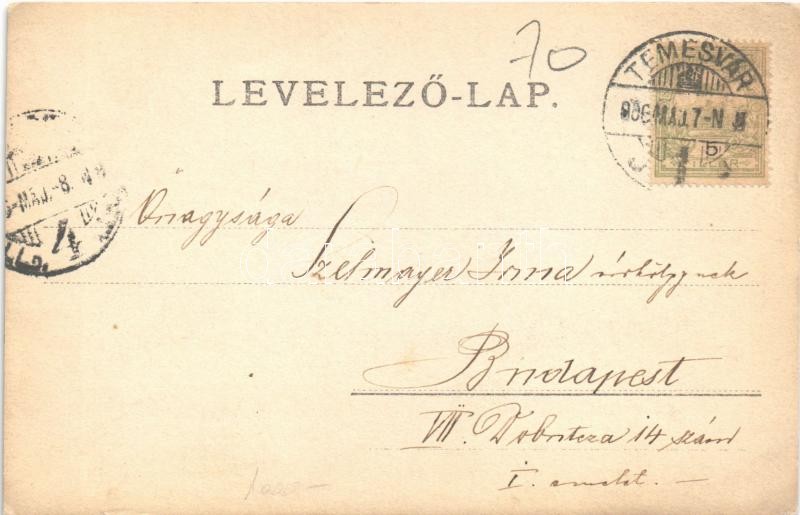 70
LEVELEZŐ-LAP.
TEMESVÁR
906 MÁJ. 7-N
5
MÁJ. -8.
Őnagysága
Szelmayer Irma úrhölgynek
Budapest
VII. Dobutcza 14 szám
I. emelet. —